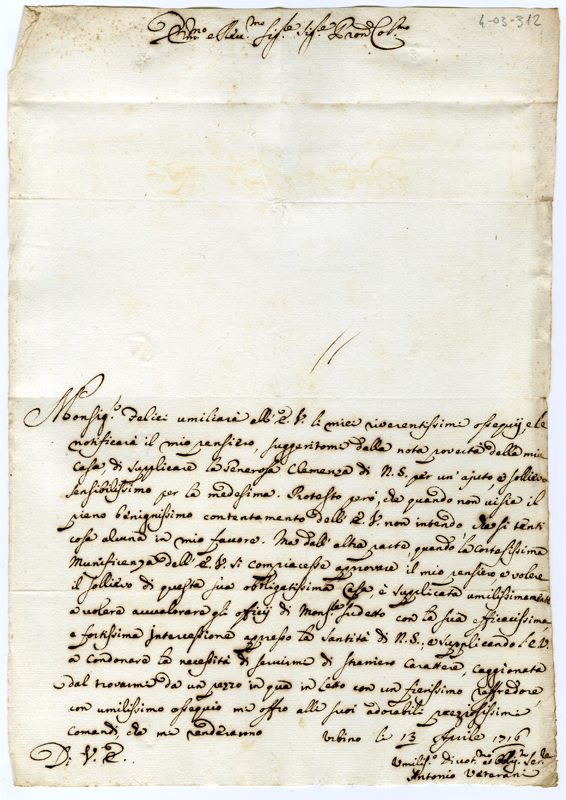 4-03-312
Em.mo e Rev.mo Sig.re Sig.re Pron Col.mo
Monsig.r delci umiliarà all'E.V. li miei riverentissimi ossequij, e le
notificarà il mio pensiero, suggeritomi dalla nota povertà della mia
Casa, di supplicare la Generosa Clemenza di N.S. per un' ajuto e sollievo
sensibilissimo per la medesima. Protesto però, che quando non visia il
pieno benignissimo contentamento dell'E.V. non intendo che si tenti
cosa alcuna in mio favore. Ma dall'altra parte, quando la Cortesissima
Munificenza dell'E.V. si compiacesse approvare il mio pensiero e volere
il sollievo di questa sua obbligatissima Casa, è supplicata umilissimamente
a volere avvalorare gli officij di Mons.r sudetto con la sua efficacissima
e fortissima Intercessione appresso la Santità di N.S., e supplicando l'E.V.
a condonare la necessità di servirmi di straniero Carattere, caggionata
dal trovarmi da un pezzo in qua in Letto con un fierissimo raffredore,
con umilissimo ossequio mi offro alli suoi adorabili pregiosissimi
comandi, che mi renderanno
Di V.E.
Urbino li 13 Aprile 1716
Umiliss.o divot.mo ed Obbl.mo Ser.re
Antonio Veterani